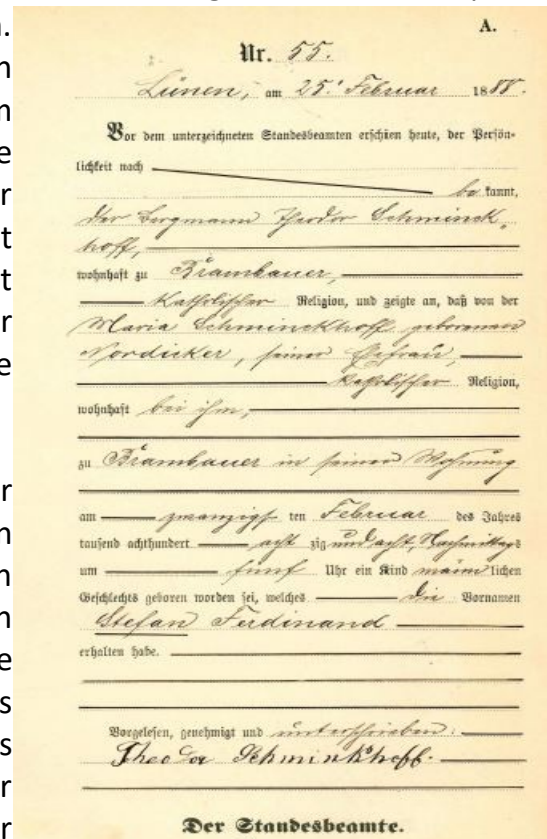 A.
Nr. 55.
Lünen, am 25. Februar 1888.
Vor dem unterzeichneten Standesbeamten erschien heute, der Persön-
lichkeit nach
be kannt,
der Bergmann Theodor Schminck,
hoff,
wohnhaft zu Brambauer,
Katholischer Religion, und zeigte an, daß von der
Maria Schminckhoff geborenen
Nordicker, seiner Ehefrau,
katholischer Religion,
wohnhaft bei ihm,
zu Brambauer in seiner Wohnung
am zwanzigs ten Februar des Jahres
tausend achthundert acht zig und acht, Nachmittags
um fünf Uhr ein Kind männ lichen
Geschlechts geboren worden sei, welches die Vornamen
Stefan Ferdinand
erhalten habe.
Vorgelesen, genehmigt und unterschrieben:
Theodor Schminkhoff.
Der Standesbeamte.